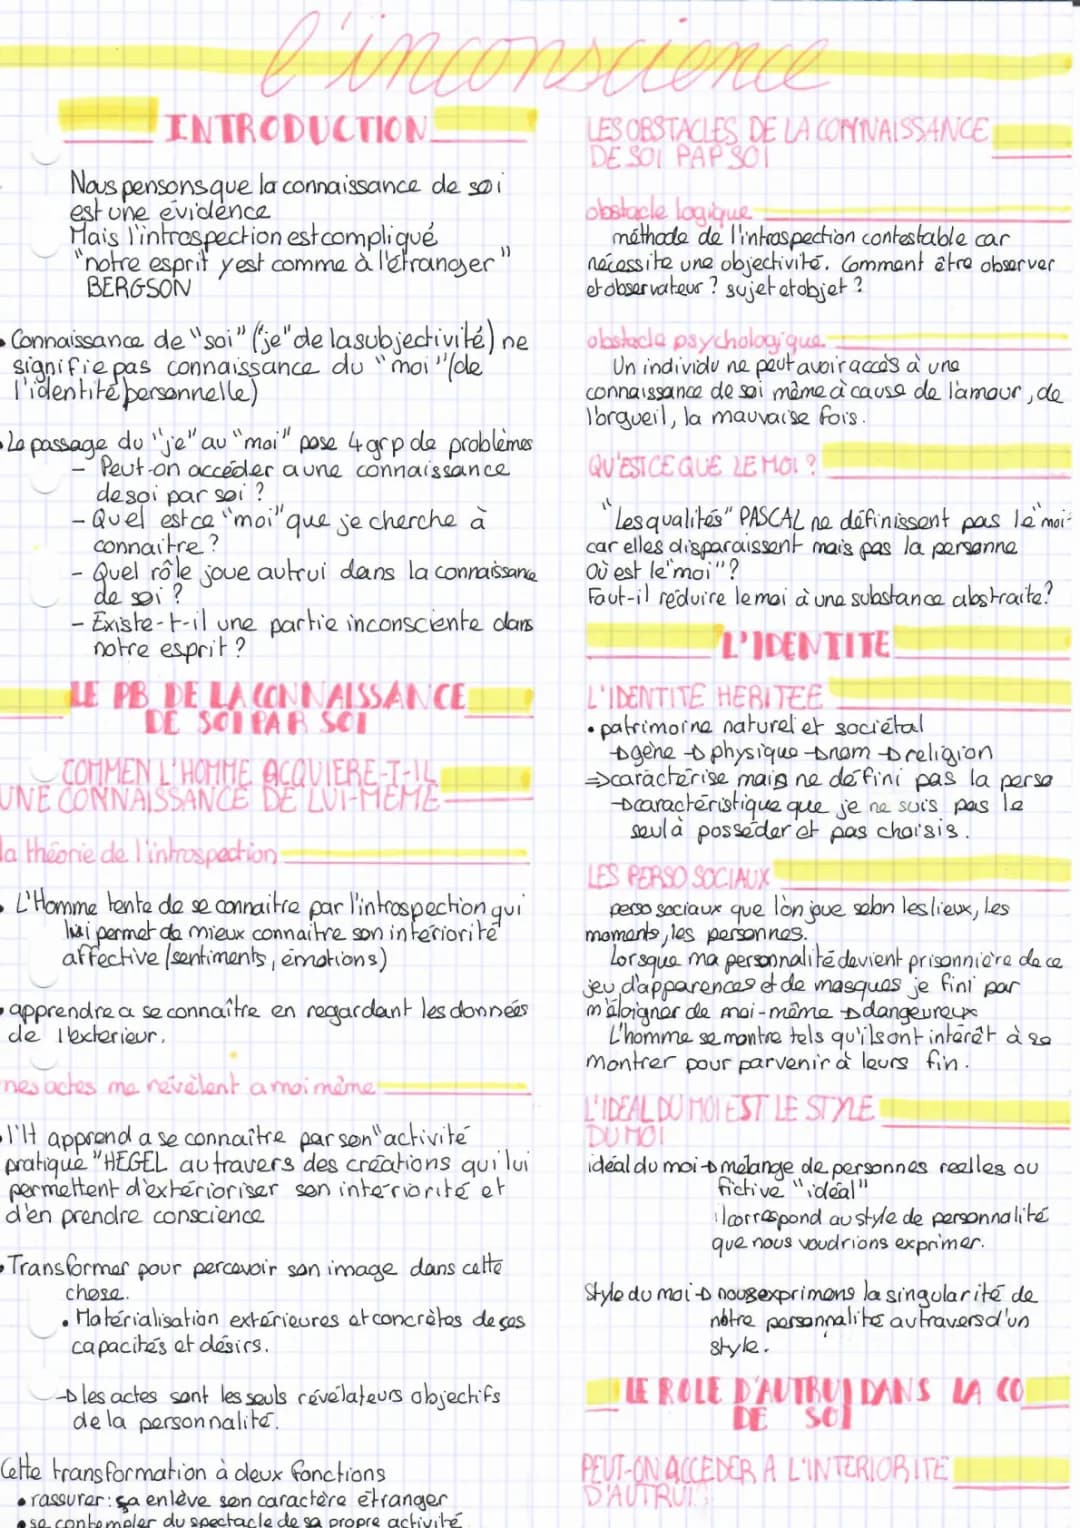 l'inconscience
INTRODUCTION
Nous pensons que la connaissance de soi
est une évidence
Mais l'introspection est compliqué
"notre esprit y est comme à l'étranger"
BERGSON
• Connaissance de "soi" ("je" de la subjectivité) ne
signifie pas connaissance du "moi" (de
l'identité personnelle)
• Le passage du "je" au "moi" pose 4 grp de problèmes
- Peut-on accéder a une connaissance
de soi par soi ?
- Quel est ce "moi" que je cherche à
connaitre ?
- Quel rôle joue autrui dans la connaissance
de soi ?
- Existe-t-il une partie inconsciente dans
notre esprit ?
LE PB DE LA CONNAISSANCE
DE SOI PAR SOI
COMMEN L'HOMME ACQUIERE-T-IL
UNE CONNAISSANCE DE LUI-MEME
la théorie de l'introspection
• L'Homme tente de se connaitre par l'introspection qui
lui permet de mieux connaitre son intériorité
affective (sentiments, émotions)
• apprendre a se connaître en regardant les données
de l'exterieur.
mes actes me révèlent a moi même
• l'H apprend a se connaître par son "activité
pratique" HEGEL au travers des créations qui lui
permettent d'extérioriser son interiorité et
d'en prendre conscience
• Transformer pour percevoir son image dans cette
chose.
• Matérialisation extérieures et concrètes de ses
capacités et désirs.
→ les actes sont les seuls révélateurs objectifs
de la personnalité.
Cette transformation à deux fonctions
• rassurer : ça enlève son caractère étranger
• se contempler du spectacle de sa propre activité
LES OBSTACLES DE LA CONNAISSANCE
DE SOI PAR SOI
obstacle logique
méthode de l'introspection contestable car
nécessite une objectivité. Comment être observer
et observateur ? sujet et objet ?
obstacle psychologique
Un individu ne peut avoir accès à une
connaissance de soi même à cause de l'amour, de
l'orgueil, la mauvaise fois.
QU'EST CE QUE LE MOI ?
"Les qualités" PASCAL ne définissent pas le "moi"
car elles disparaissent mais pas la personne
Où est le "moi" ?
Faut-il réduire le moi à une substance abstraite ?
L'IDENTITE
L'IDENTITE HERITEE
• patrimoine naturel et sociétal
→ gène → physique → nom → religion
⇒ caractérise mais ne défini pas la perso
→ caractéristique que je ne suis pas le
seul à posséder et pas choisis.
LES PERSO SOCIAUX
perso sociaux que l'on joue selon les lieux, les
moments, les personnes.
Lorsque ma personnalité devient prisonnière de ce
jeu d'apparences et de masques je fini par
m'éloigner de moi-même → dangeureux
L'homme se montre tels qu'ils ont intérêt à se
montrer pour parvenir à leurs fin.
L'IDEAL DU MOI EST LE STYLE
DU MOI
idéal du moi → mélange de personnes réelles ou
fictive "idéal"
il correspond au style de personnalité
que nous voudrions exprimer.
Style du moi → nous exprimons la singularité de
nôtre personnalité au travers d'un
style.
LE ROLE D'AUTRUI DANS LA CO
DE SOI
PEUT-ON ACCEDER A L'INTERIORITE
D'AUTRUI ?